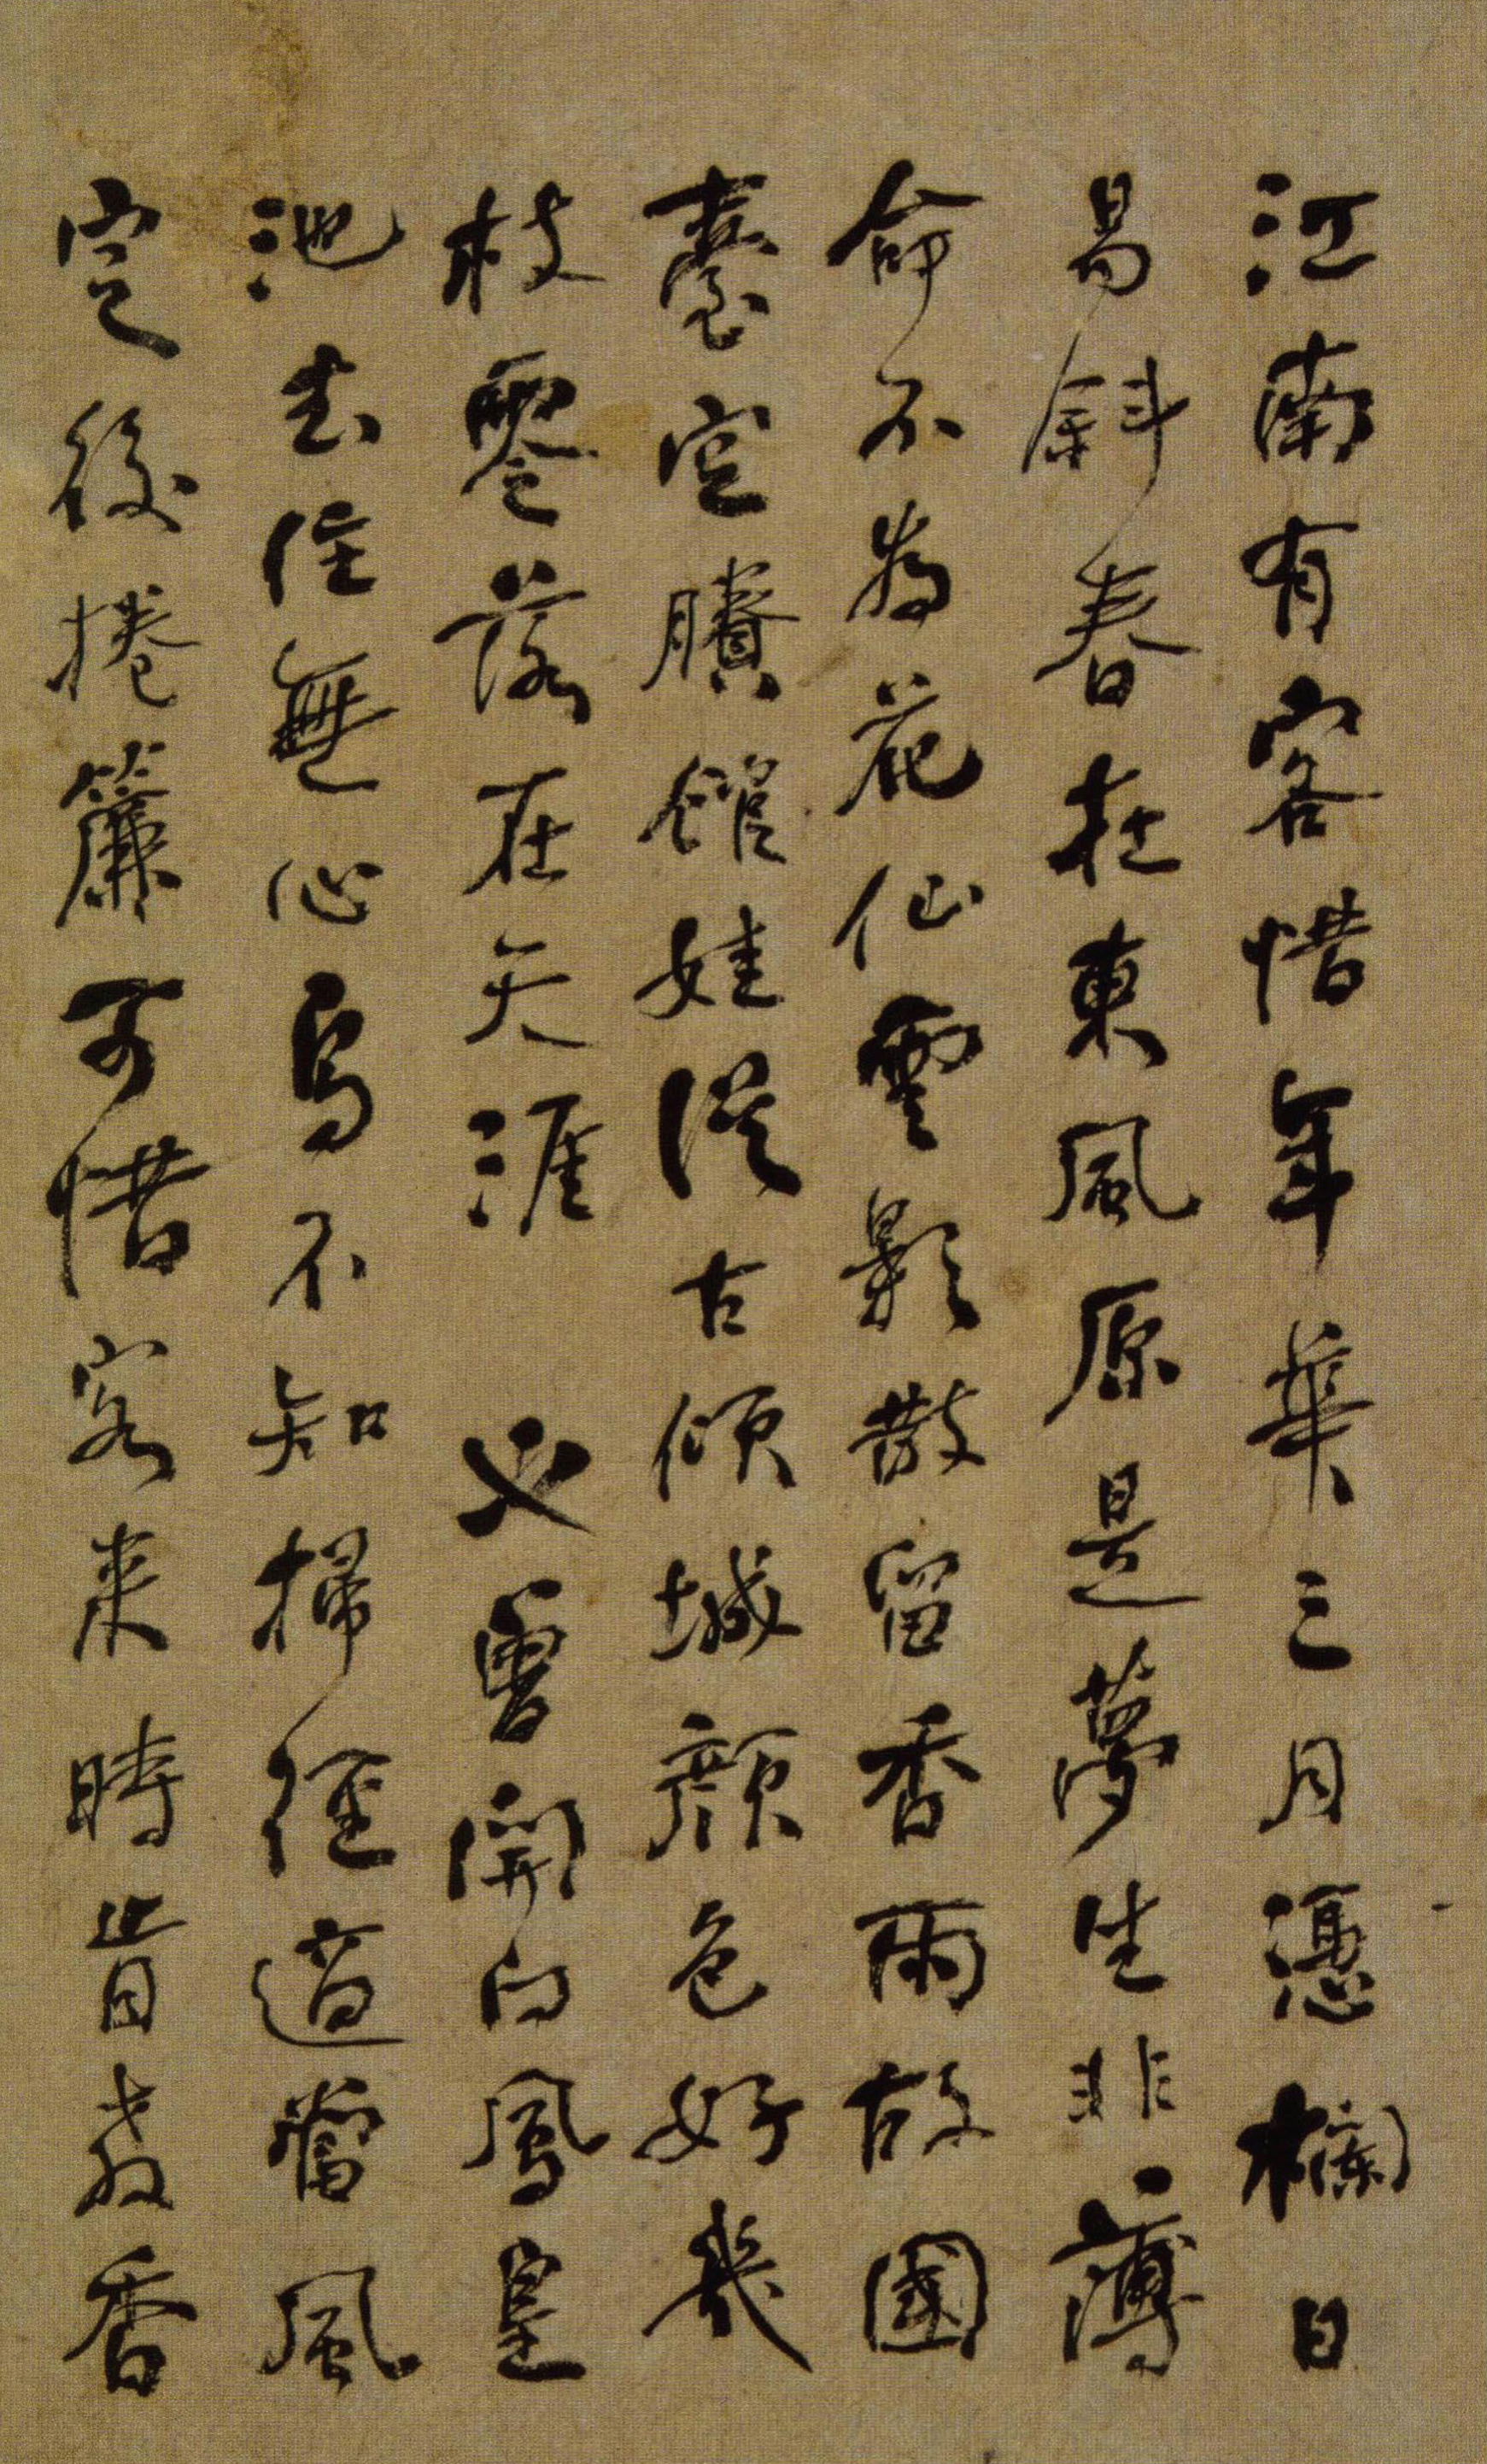 江南有客惜年華三月憑欄日
易斜春在東風原是夢生非薄
命不為花仙雲影散留香雨故國
臺空賸館娃從古傾城顏色好幾
枝零落在天涯 又曾開向鳳皇
池去住無心鳥不知掃徑適當風
定後捲簾可惜客來時肯教香